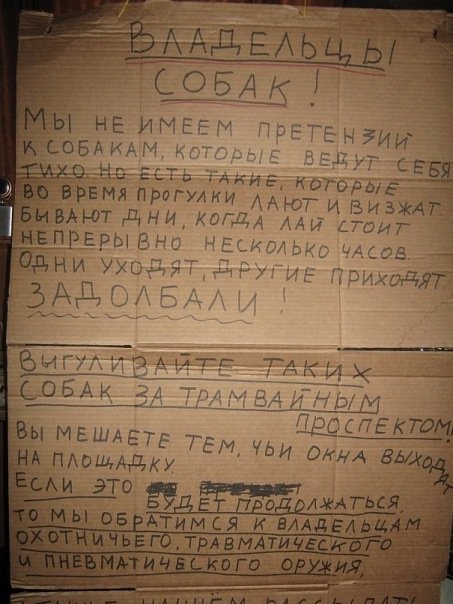 ВЛАДЕЛЬЦЫ
СОБАК!
МЫ НЕ ИМЕЕМ ПРЕТЕНЗИЙ
К СОБАКАМ, КОТОРЫЕ ВЕДУТ СЕБЯ
ТИХО. НО ЕСТЬ ТАКИЕ, КОТОРЫЕ
ВО ВРЕМЯ ПРОГУЛКИ ЛАЮТ И ВИЗЖАТ.
БЫВАЮТ ДНИ, КОГДА ЛАЙ СТОИТ
НЕПРЕРЫВНО НЕСКОЛЬКО ЧАСОВ.
ОДНИ УХОДЯТ, ДРУГИЕ ПРИХОДЯТ.
ЗАДОЛБАЛИ!
ВЫГУЛИВАЙТЕ ТАКИХ
СОБАК ЗА ТРАМВАЙНЫМ
ПРОСПЕКТОМ!
ВЫ МЕШАЕТЕ ТЕМ, ЧЬИ ОКНА ВЫХОДЯТ
НА ПЛОЩАДКУ.
ЕСЛИ ЭТО
БУДЕТ ПРОДОЛЖАТЬСЯ,
ТО МЫ ОБРАТИМСЯ К ВЛАДЕЛЬЦАМ
ОХОТНИЧЬЕГО, ТРАВМАТИЧЕСКОГО
И ПНЕВМАТИЧЕСКОГО ОРУЖИЯ,